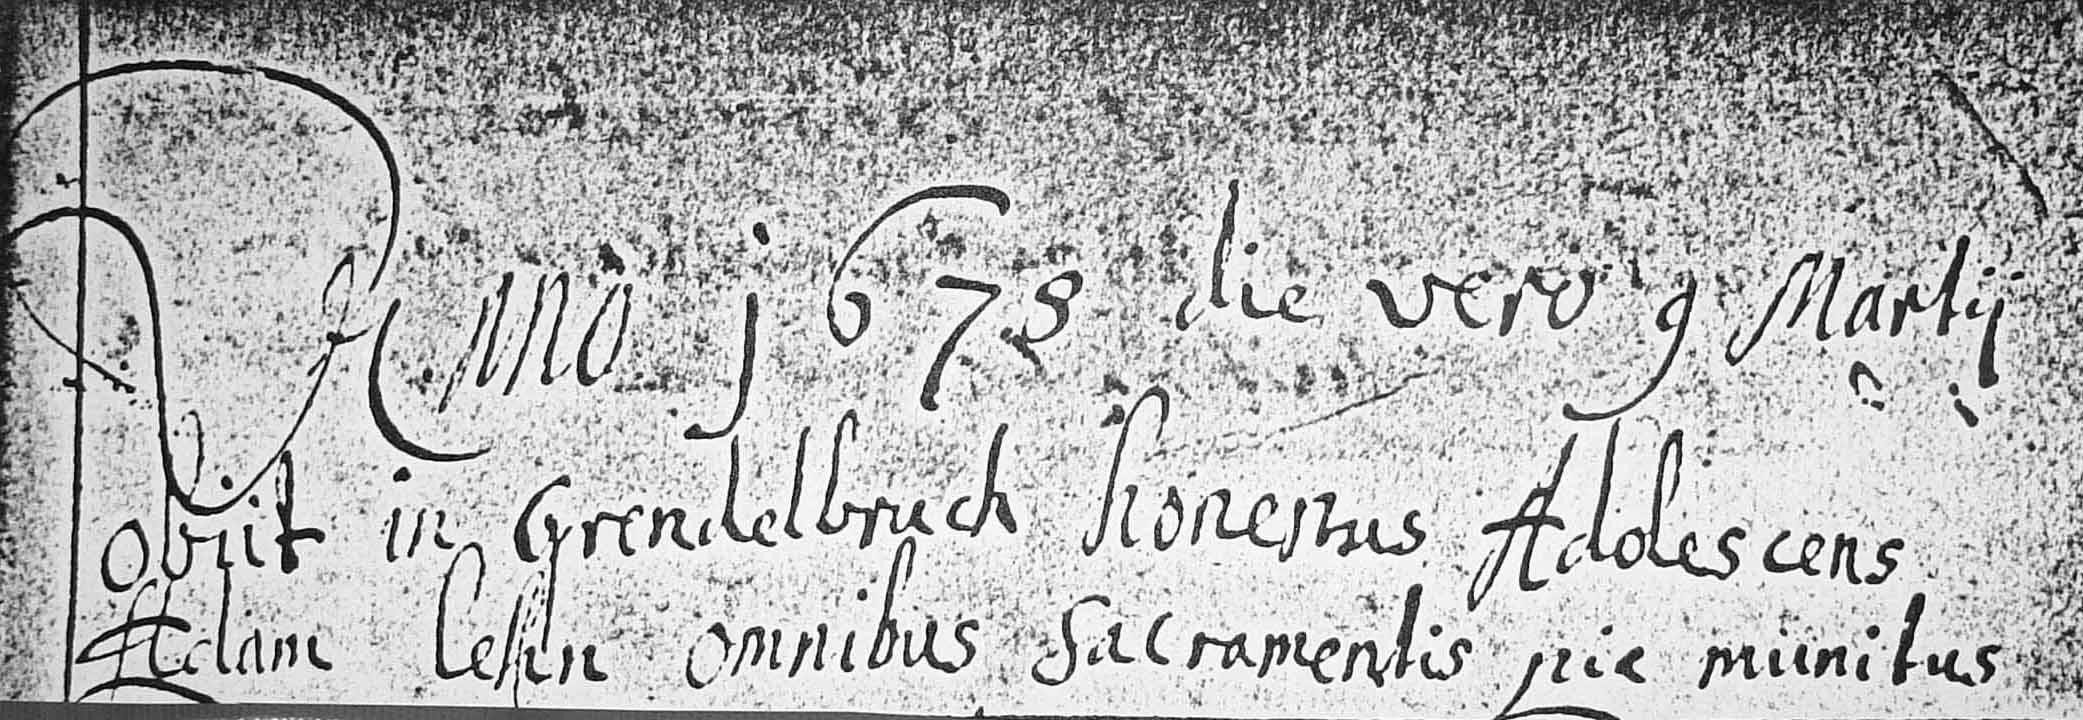 Anno 1678 die vero 9 Martij
obiit in Grendelbruch honestus Adolescens
Adam omnibus Sacramentis pie munitus